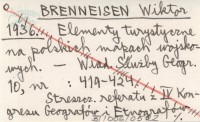 BRENNEISEN Wiktor
1936. Elementy turystyczne
na polskich mapach wojsko-
wych. — Wiad. Służby Geogr.
10, nr : 419-424.
Streszcz. referatu z IV Kon-
gresu Geografów i Etnografów